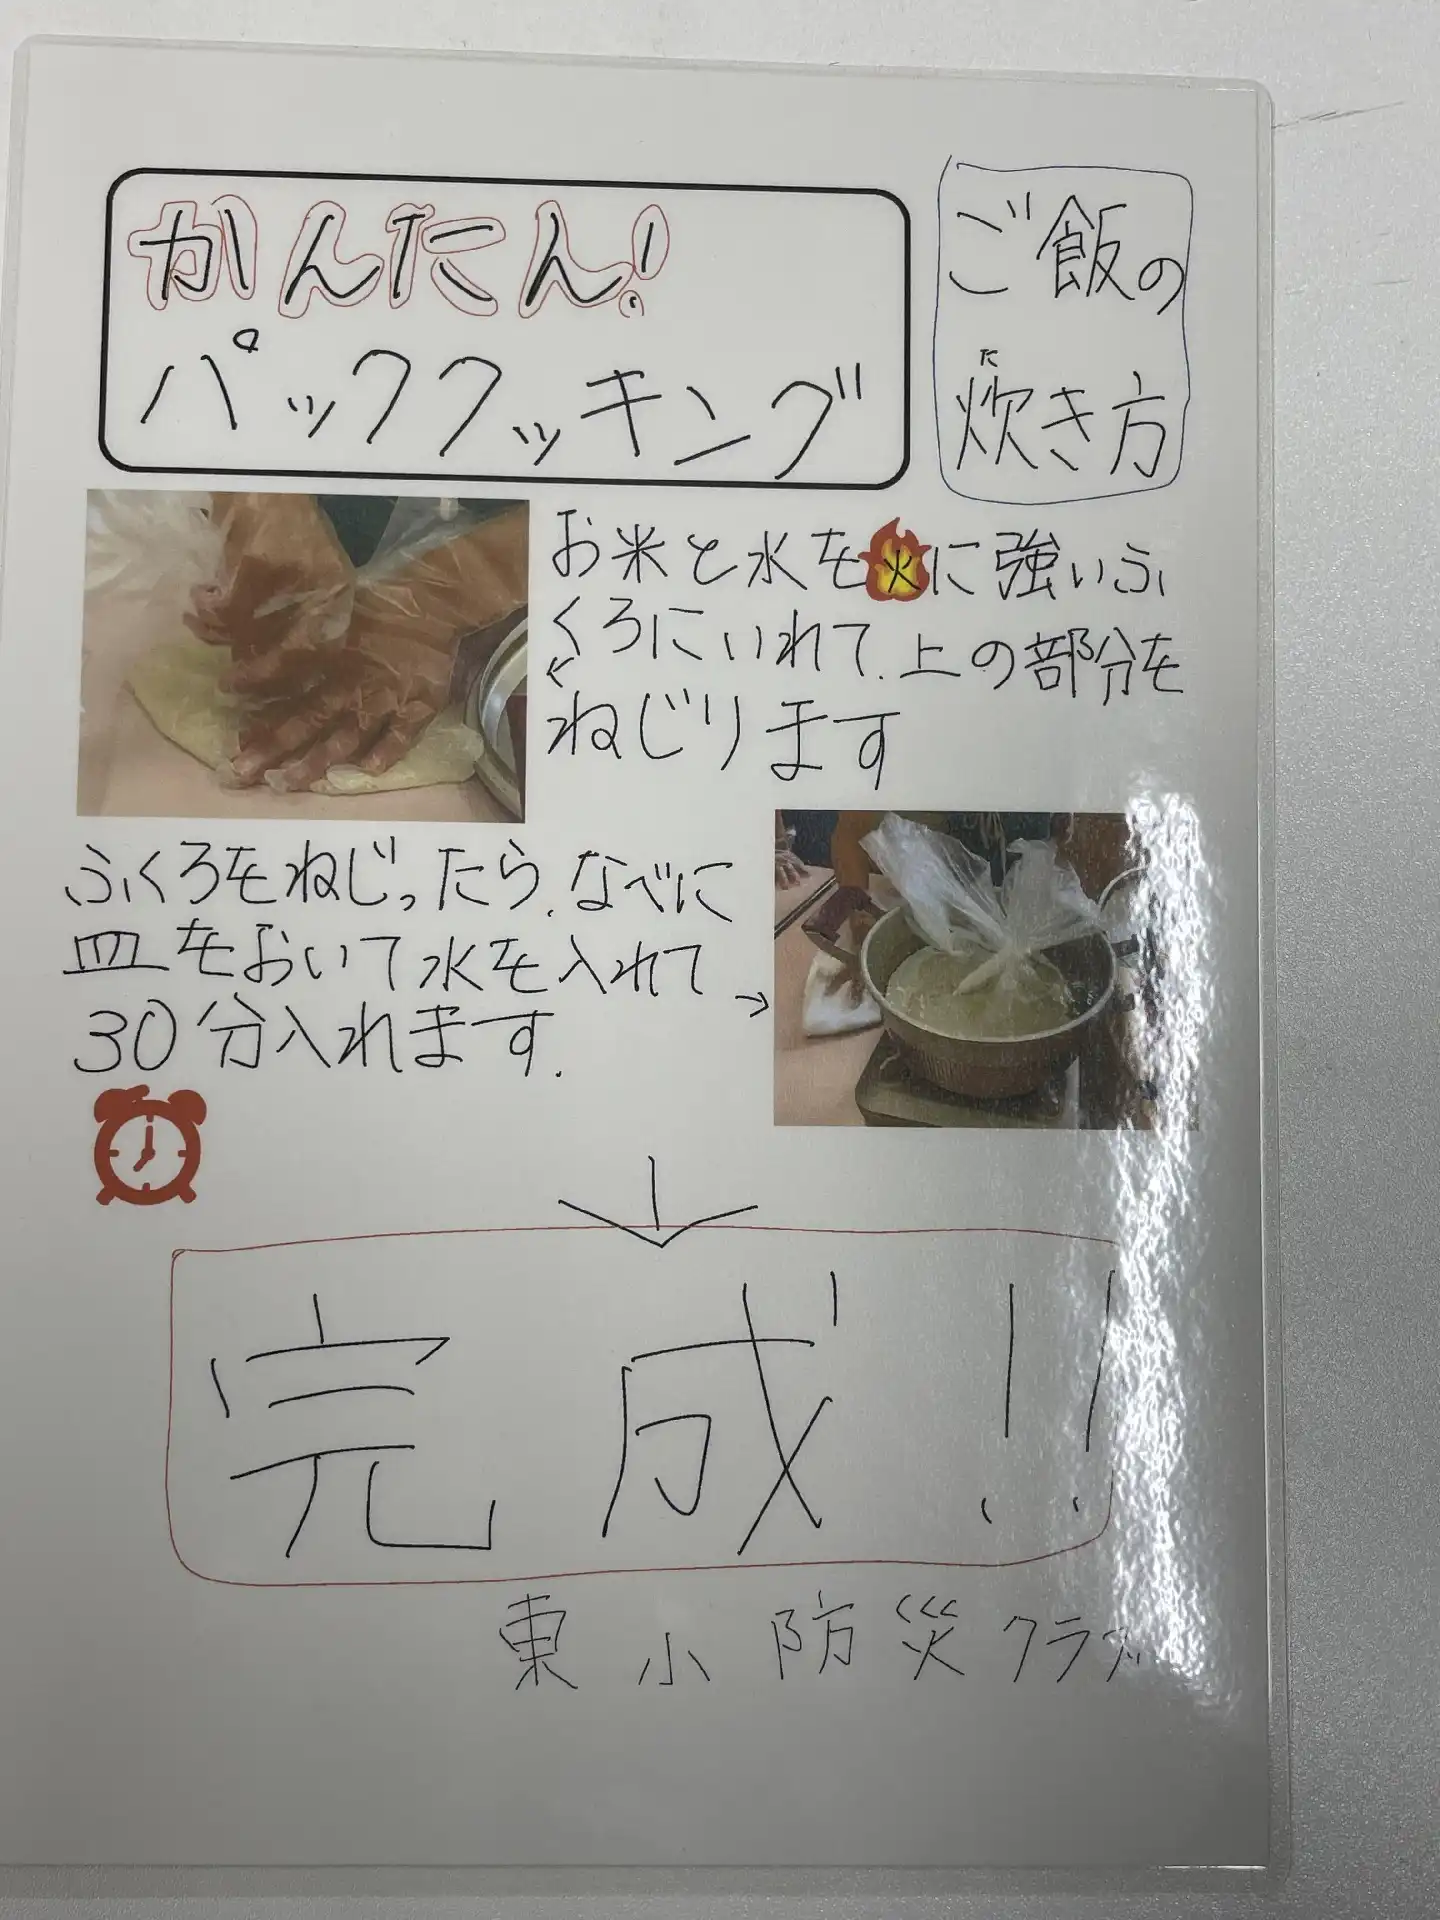 かんたん!
パッククッキング
ご飯の
炊き方
た
お米と水を火に強いふ
くろにいれて、上の部分を
←ねじります
ふくろをねじったら、なべに
皿をおいて水を入れて→
30分入れます.
↓
完成!!
東小防災クラブ